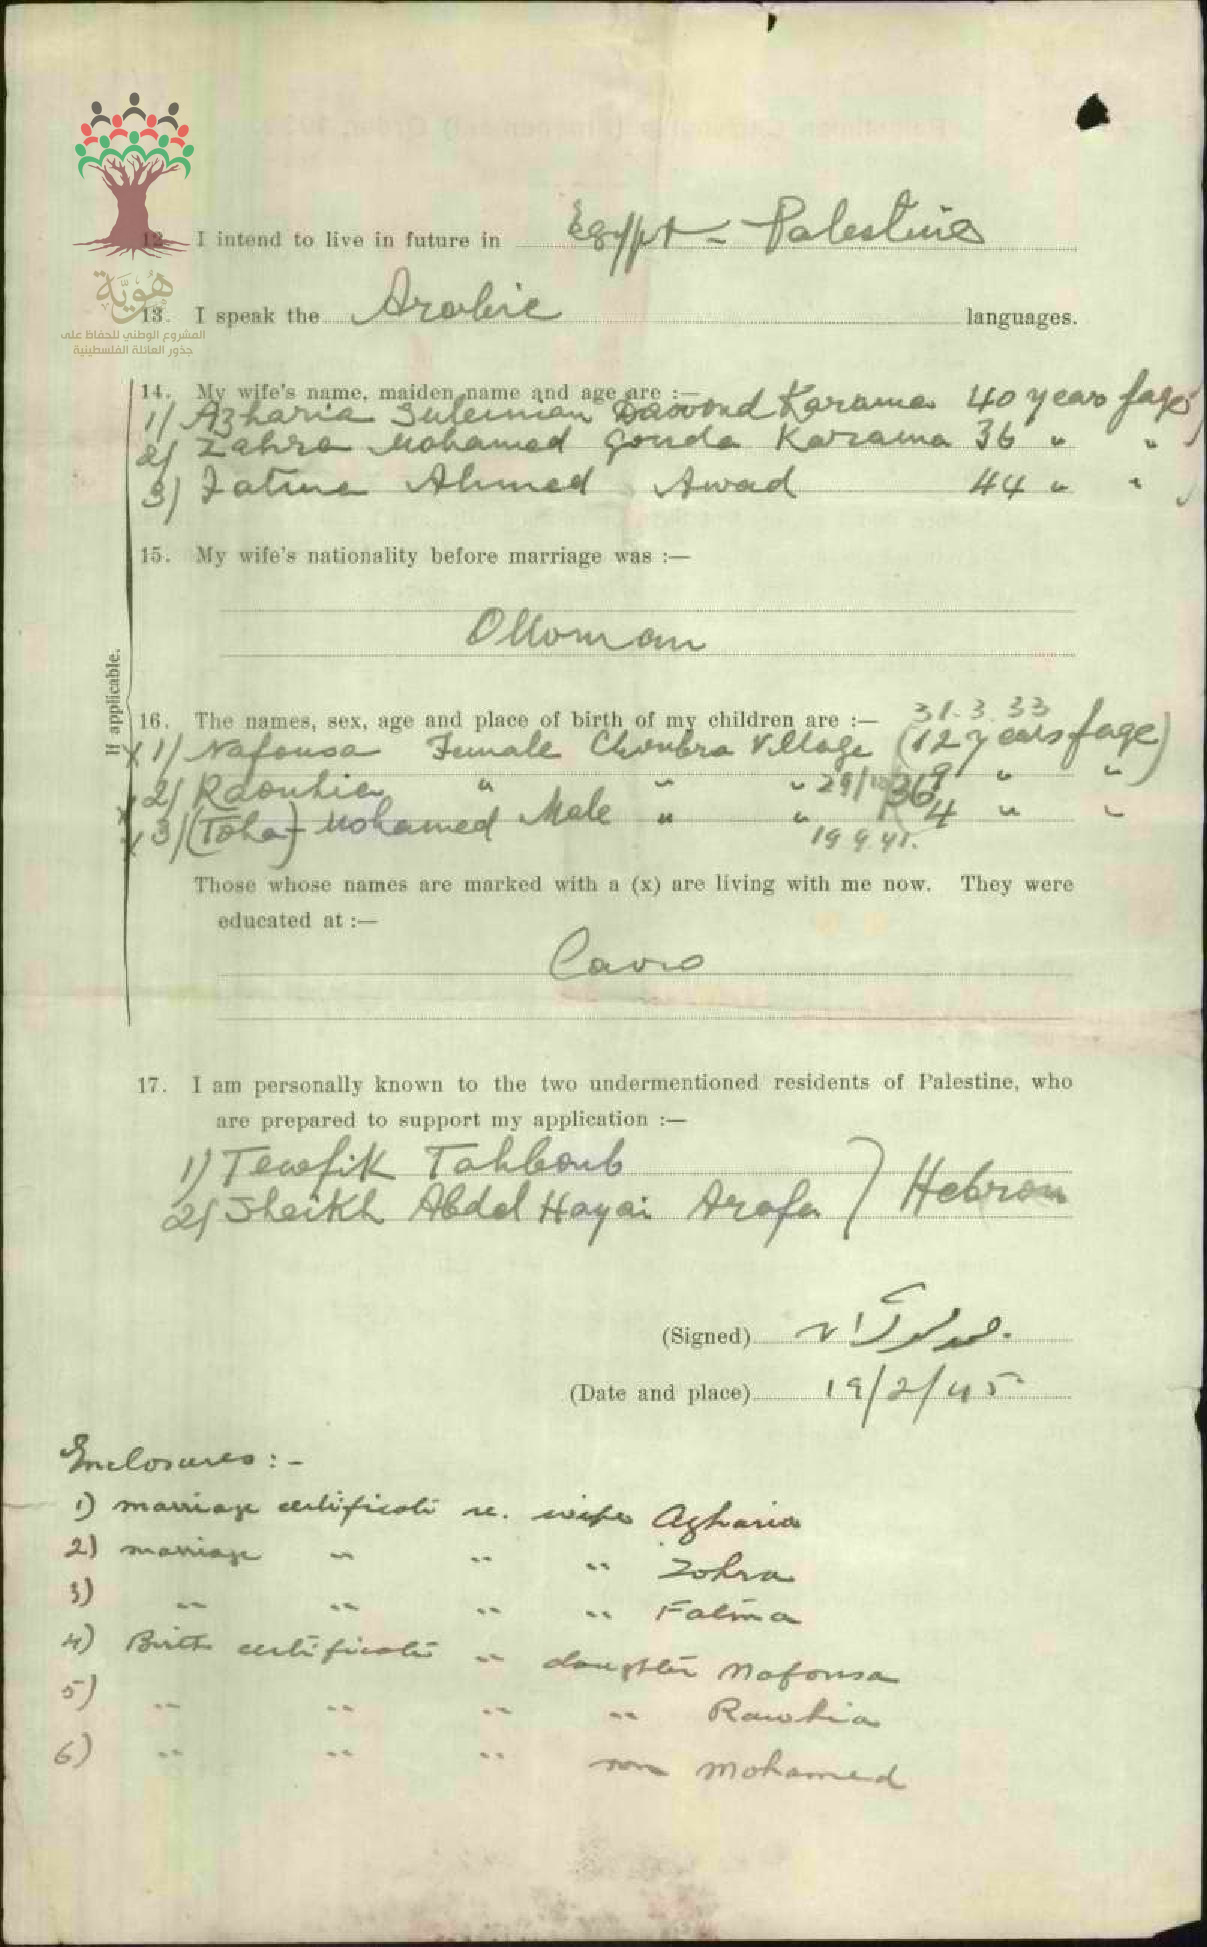 12. I intend to live in future in Egypt - Palestine
هُوِيَّة
13. I speak the Arabic languages.
المشروع الوطني للحفاظ على
جذور العائلة الفلسطينية
If applicable.
14. My wife's name, maiden name and age are :—
1) Azharia Suleiman Daoud Karama 40 years of age
2) Zahra Mohamed Gouda Karama 36 " "
3) Fatma Ahmed Awad 44 " "
15. My wife's nationality before marriage was :—
Ottoman
16. The names, sex, age and place of birth of my children are :— 31.3.33
x 1) Nafousa Female Choubra Village (12 years of age)
x 2) Raouhia " " " 29/10/36 9 " "
x 3) (Toha) Mohamed Male " " 4 " "
19.9.41.
Those whose names are marked with a (x) are living with me now. They were
educated at :—
Cairo
17. I am personally known to the two undermentioned residents of Palestine, who
are prepared to support my application :—
1) Tewfik Tahboub
2) Sheikh Abdel Hayai Arafa } Hebron
(Signed)
(Date and place) 19/2/45
Enclosures :-
1) marriage certificate re. wife Azharia
2) marriage " " " Zohra
3) " " " " Fatma
4) Birth certificate " daughter Nafousa
5) " " " " Rawhia
6) " " " son Mohamed